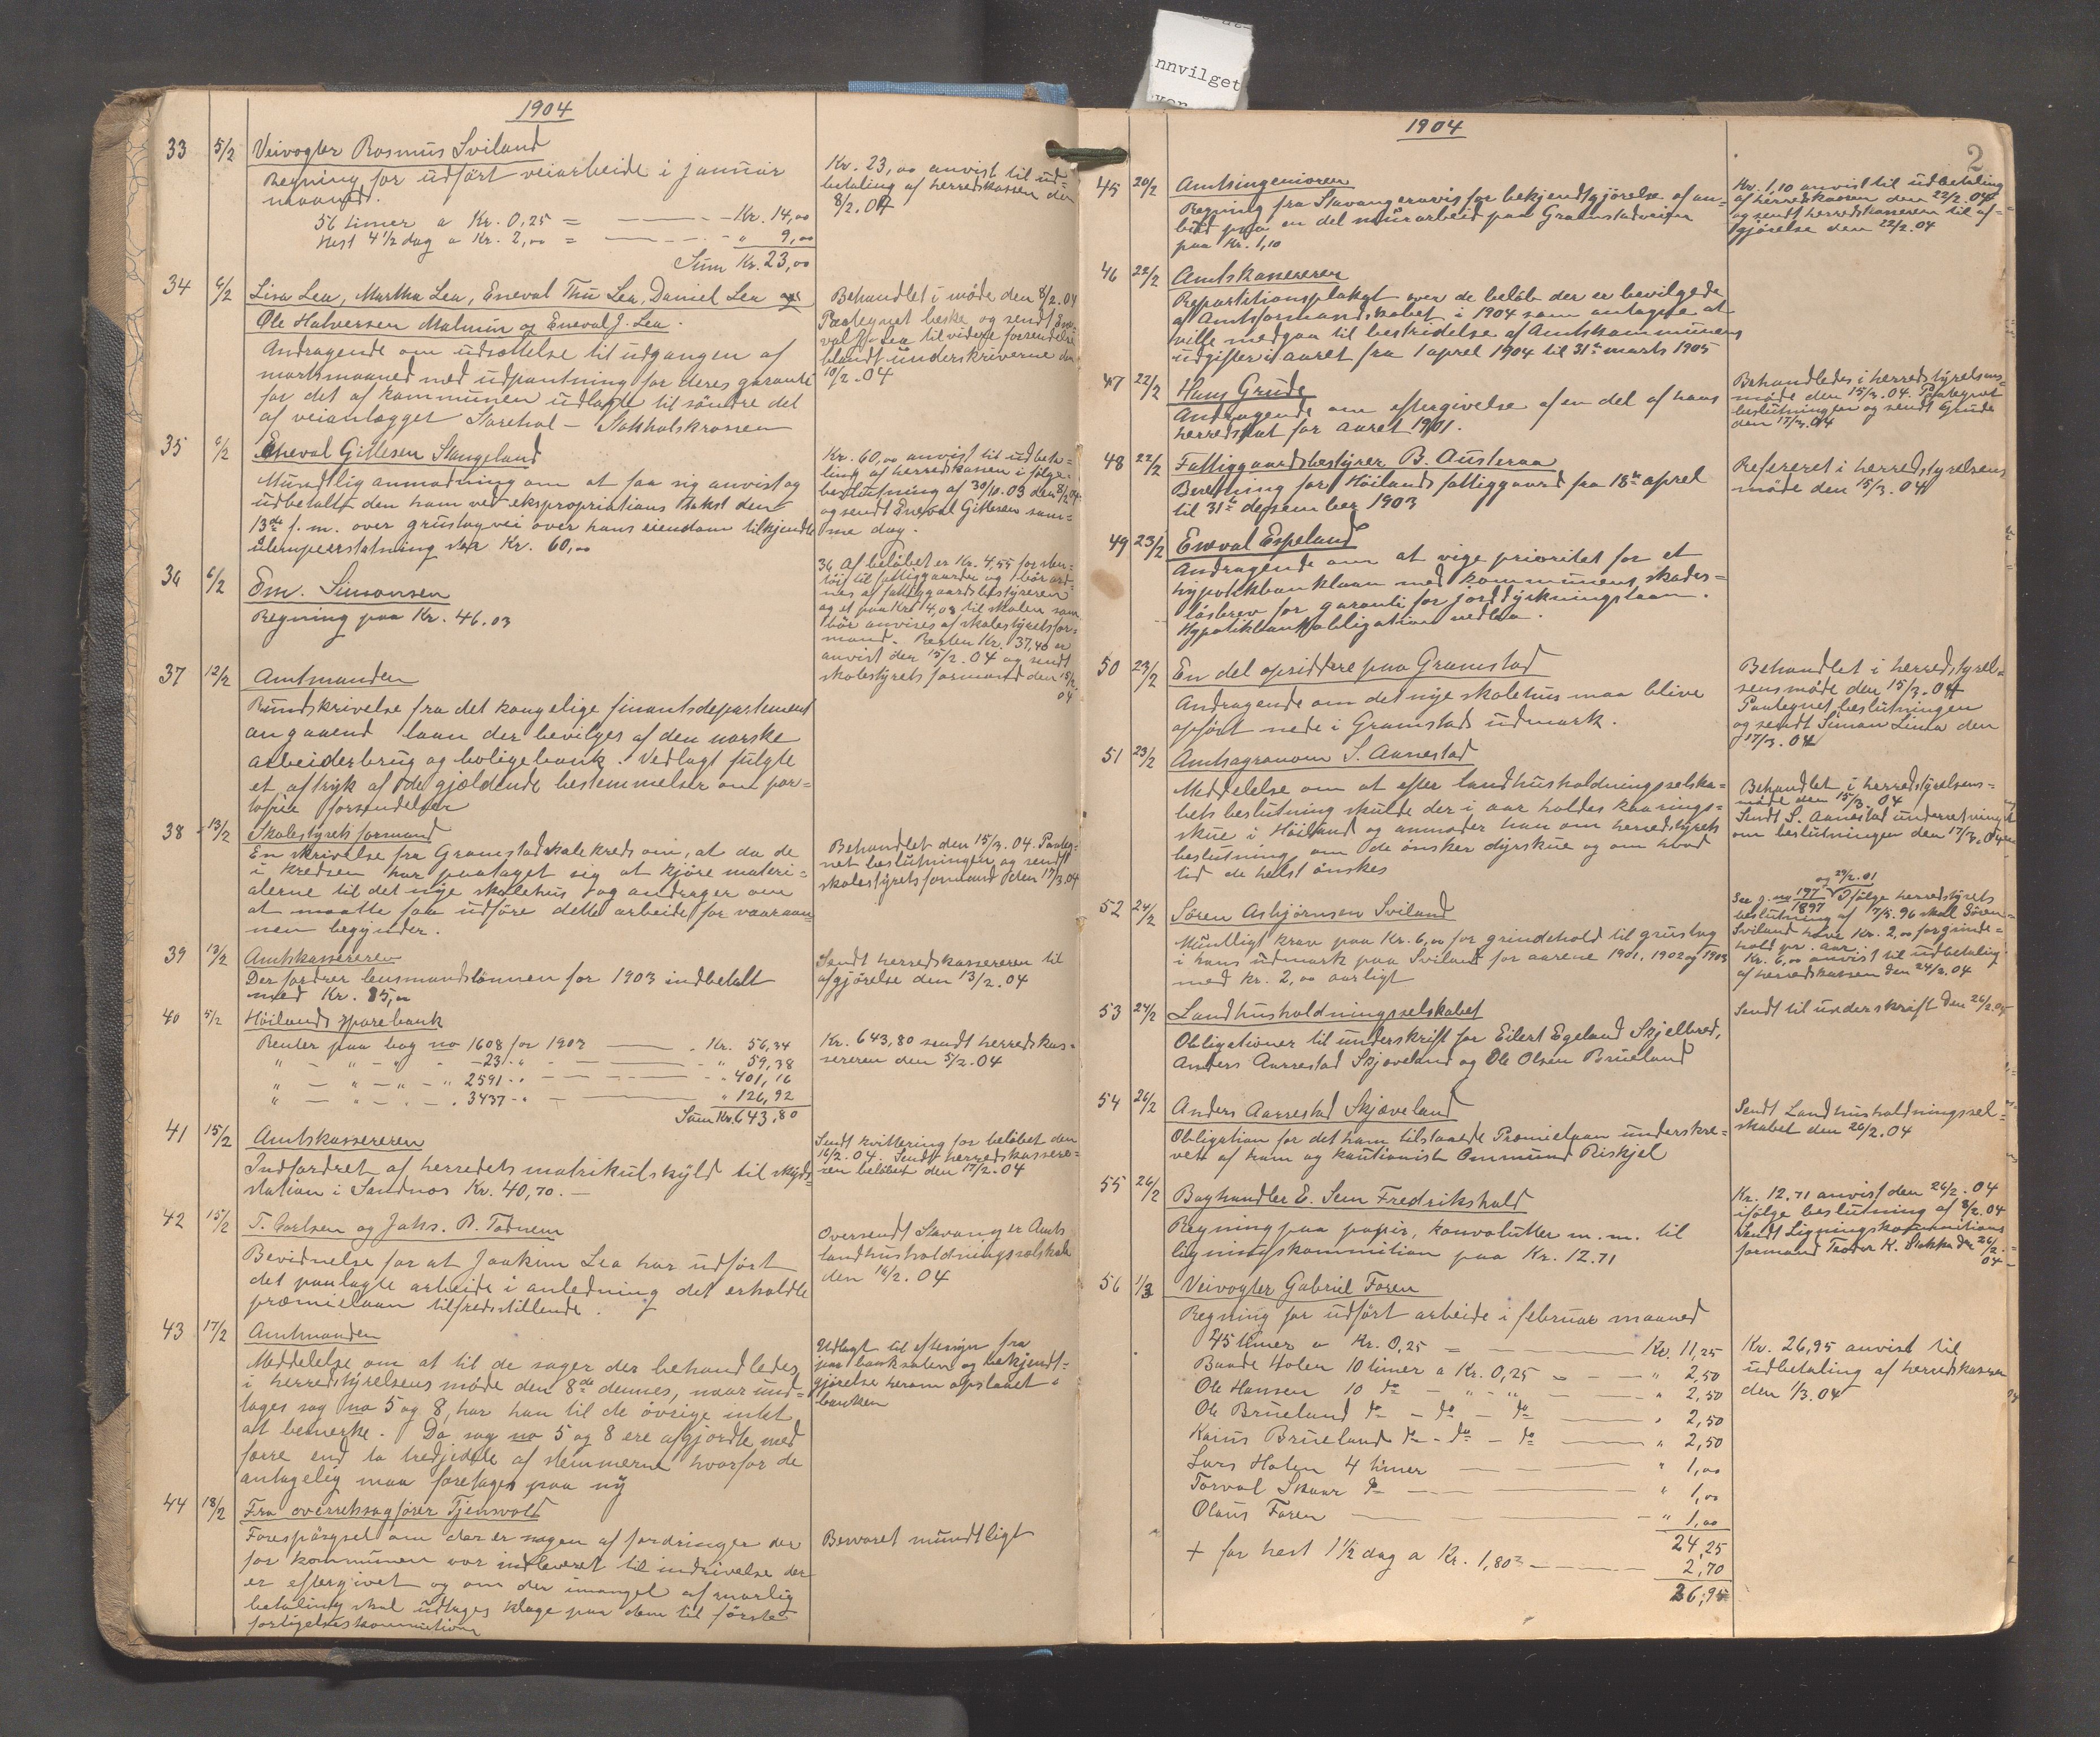 nnvilget
1904
33 5/2 Veivogter Rasmus Sviland
Regning for udført veiarbeide i januar
maaned.
56 timer a Kr. 0,25 = Kr. 14,00
Hest 4 1/2 dag a Kr. 2,00 = " 9,00
Sum Kr. 23,00
Kr. 23,00 anvist til ud=
betaling af herredskassen den
8/2.04
34 6/2 Lisa Lea, Martha Lea, Eneval Thu Lea, Daniel Lea og
Ole Halversen Malmin og Eneval J. Lea.
Andragende om udsættelse til udgangen af
martsmaaned med udpantning for deres garanti
for det af kommunen udlagte til søndre del
af veianlægget Sorehol – Stokholskrossen
Behandlet i møde den 8/2.04
Paategnet beske og sendt Ene=
val J. Lea til videre forsendelse
blandt underskriverne den
10/2.04
35 6/2 Eneval Gittesen Stangeland
Mundtlig anmodning om at faa sig anvist og
udbetalt den ham ved ekspropriations takst den
13de f. m. over grustagvei over hans eiendom tilkjendte
ulempeerstatning stor Kr. 60,00
Kr. 60,00 anvist til udbeta=
ling af herredskassen i følge
beslutning af 30/10.03 den 8/2 04
og sendt Eneval Gittesen sam=
me dag.
36 6/2 Em. Simonsen
Regning paa Kr. 46.03
36 Af beløbet er Kr. 4,55 for sten=
tøi til fattiggaarden og bør ord=
nes af fattiggaardsbestyreren
og et paa Kr. 4,08 til skolen som
bør anvises af skolestyrets for=
mand. Resten Kr. 37,40 er
anvist den 15/2.04 og sendt
skolestyrets formand den 15/2
04
37 12/2 Amtmanden
Rundskrivelse fra det kongelige finantsdepartement
angaaend laan der bevilges af den norske
arbeiderbrug og boligebank. Vedlagt fulgte
et aftryk af de gjældende bestemmelser om por=
tofrie forsendelser
38 13/2 Skolestyrets formand
En skrivelse fra Gramstad skolekreds om, at da de
i kredsen har paataget sig at kjøre materi=
alerne til det nye skolehus og andrager om
at maatte faa udføre dette arbeide før vaaraan=
nen begynder.
Behandlet den 15/3.04. Paateg=
net beslutningen og sendt
skolestyrets formand den 17/3.04
39 13/2 Amtskassereren
Der fordrer lensmandslønnen for 1903 indbetalt
med Kr. 85,00
Sendt herredskassereren til
afgjørelse den 13/2.04
40 5/2 Höilands sparebank
Renter paa bog no 1608 for 1903 Kr. 56,34
" – " – " – 23 " " 59,38
" – " – " – " 2591 " " 401,16
" – " – " – " 3437 " " 126,92
Sum Kr. 643,80
Kr. 643,80 sendt herredskas=
sereren den 5/2.04
41 15/2 Amtskassereren
Indfordret af herredets matrikulskyld til skyds=
station i Sandnes Kr. 40,70.—
Sendt kvittering for beløbet den
16/2.04. Sendt herredskassere=
ren beløbet den 17/2.04
42 15/2 T. Carlsen og Johs. B. Todnem
Bevidnelse for at Joakim Lea har udført
det paalagte arbeide i anledning det erholdte
præmielaan tilfredsstillende.
Oversendt Stavanger Amts
landhusholdningsselskab
den 16/2.04
43 17/2 Amtmanden
Meddelelse om at til de sager der behandledes
i herredstyrelsens møde den 8de dennes, naar und=
tages sag no 5 og 8, har han til de øvrige intet
at bemerke. Da sag no 5 og 8 ere afgjordte med
færre end to tredjedele af stemmerne hvorfor de
antagelig maa foretages paa ny
Udlagt til eftersyn fra
banksalen og bekjendt=
gjørelse herom opslaaet i
banken
44 18/2 Fra overretssagfører Tjensvold
Forespørgsel om der er nogen af fordringer der
for kommunen var indleveret til indrivelse der
er eftergivet og om der imangel af mærlig
betaling skal udtages klage paa dem til første
forligelseskommission
Besvaret mundtligt
1904
2
45 20/2 Amtsingeniøren
Regning fra Stavangeravis for bekjendtgjørelse af an=
bud paa en del murarbeid paa Gramstadveien
paa Kr. 1,10
Kr. 1,10 anvist til udbetaling
af herredskassen den 22/2.04
og sendt herredskassereren til af=
gjørelse den 22/2.04
46 22/2 Amtskassereren
Repartitionsplakat over de beløb der er bevilgede
af Amtsformandskabet i 1904 som antages at
ville medgaa til bestridelse af Amtskommunens
udgifter i aaret fra 1 april 1904 til 31te marts 1905
47 22/2 Hans Grude
Andragende om eftergivelse af en del af hans
herredskat for aaret 1901.
Behandledes i herredstyrelsens
møde den 15/3.04. Paategnet
beslutningen og sendt Grude
den 17/3.04
48 22/2 Fattiggaardsbestyrer B. Austeraa
Beretning for Höilands fattiggaard fra 18de april
til 31te desember 1903
Refereret i herredstyrelsens
møde den 15/3.04
49 23/2 Eneval Espeland
Andragende om at vige prioritet for et
hypotekbanklaan med kommunens skades=
løsbrev for garanti for jorddyrkningslaan.
Hypotekbankobligation vedlaa.
50 23/2 En del opsiddere paa Gramstad
Andragende om det nye skolehus maa blive
opført nede i Gramstads udmark.
Behandlet i herredstyrel=
sens møde den 15/3.04
Paategnet beslutningen
og sendt Simon Lima den
17/3.04
51 23/2 Amtsagronom S. Aanestad
Meddelelse om at efter landhusholdningsselska=
bets beslutning skulde der i aar holdes kaarings=
skue i Höiland og anmoder han om herredstyrets
beslutning om de ønsker dyrskue og om hvad
tid de helst ønskes
Behandlet i herredstyrelsens=
møde den 15/3.04
Sendt S. Aanestad underretning
om beslutningen den 17/3.04
52 24/2 Søren Asbjørnsen Sviland
Mundtligt krav paa Kr. 6,00 for grindehold til grustag
i hans udmark paa Sviland for aarene 1901, 1902 og 1903
med kr. 2,00 aarligt
og 29/2.01
Se j. no 197/1897 Ifølge herredstyrets
beslutning af 7/5.96 skal Søren
Sviland have Kr. 2,00 for grinde=
hold pr. aar.
Kr. 6,00 anvist til udbetaling
af herredskassen den 24/2.04
53 24/2 Landhusholdningsselskabet
Obligationer til underskrift for Eilert Egeland Skjelbred,
Anders Aarrestad Skjæveland og Ole Olsen Brueland
Sendt til underskrift den 26/2.04
54 26/2 Anders Aarrestad Skjæveland
Obligation for det ham tilstaaede Præmielaan underskre=
vet af ham og kautionist Ommund Riskjel
Sendt Landhusholdningssel=
skabet den 26/2.04
55 26/2 Boghandler E. Sem Fredrikshald
Regning paa papir, konvolutter m.m. til
ligningskommition paa Kr. 12.71
Kr. 12.71 anvist den 26/2.04
ifølge beslutning af 8/2.04
Sendt Ligningskommitions
formand Teodor K. Stokka den 26/2.
04
56 1/3 Veivogter Gabriel Foren
Regning for udført arbeide i februar maaned
45 timer a Kr. 0,25 = Kr. 11,25
Baade Holen 10 timer a Kr. 0,25 " 2,50
Ole Hansen 10 do – " – " " 2,50
Ole Brueland do – do – do " 2,50
Kaius Brueland do – do – do " 2,50
Lars Holen 4 timer " 1,00
Torval Skaar do " 1,00
Olaus Foren " 1,00
24,25
+ for hest 1 1/2 dag a Kr. 1,80 2,70
26,95
Kr. 26,95 anvist til
udbetaling af herredskassen
den 1/3.04